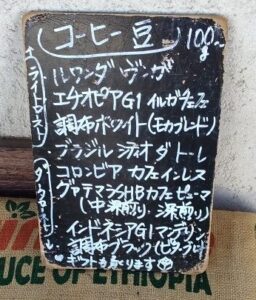 コーヒー豆 100g~
ライトロースト
ルワンダ ヴンガ
エチオピアG1 イルガチェフェ
調布ホワイト(モカブレンド)
ブラジル シティオ ダ トーレ
コロンビア カフェインレス
グァテマラSHB カフェピューマ
(中深煎り 深煎り)
インドネシアG1マンデリン
調布ブラック(ビターブレンド)
ダークロースト
ギフトもあります
UCE OF ETHIOPIA